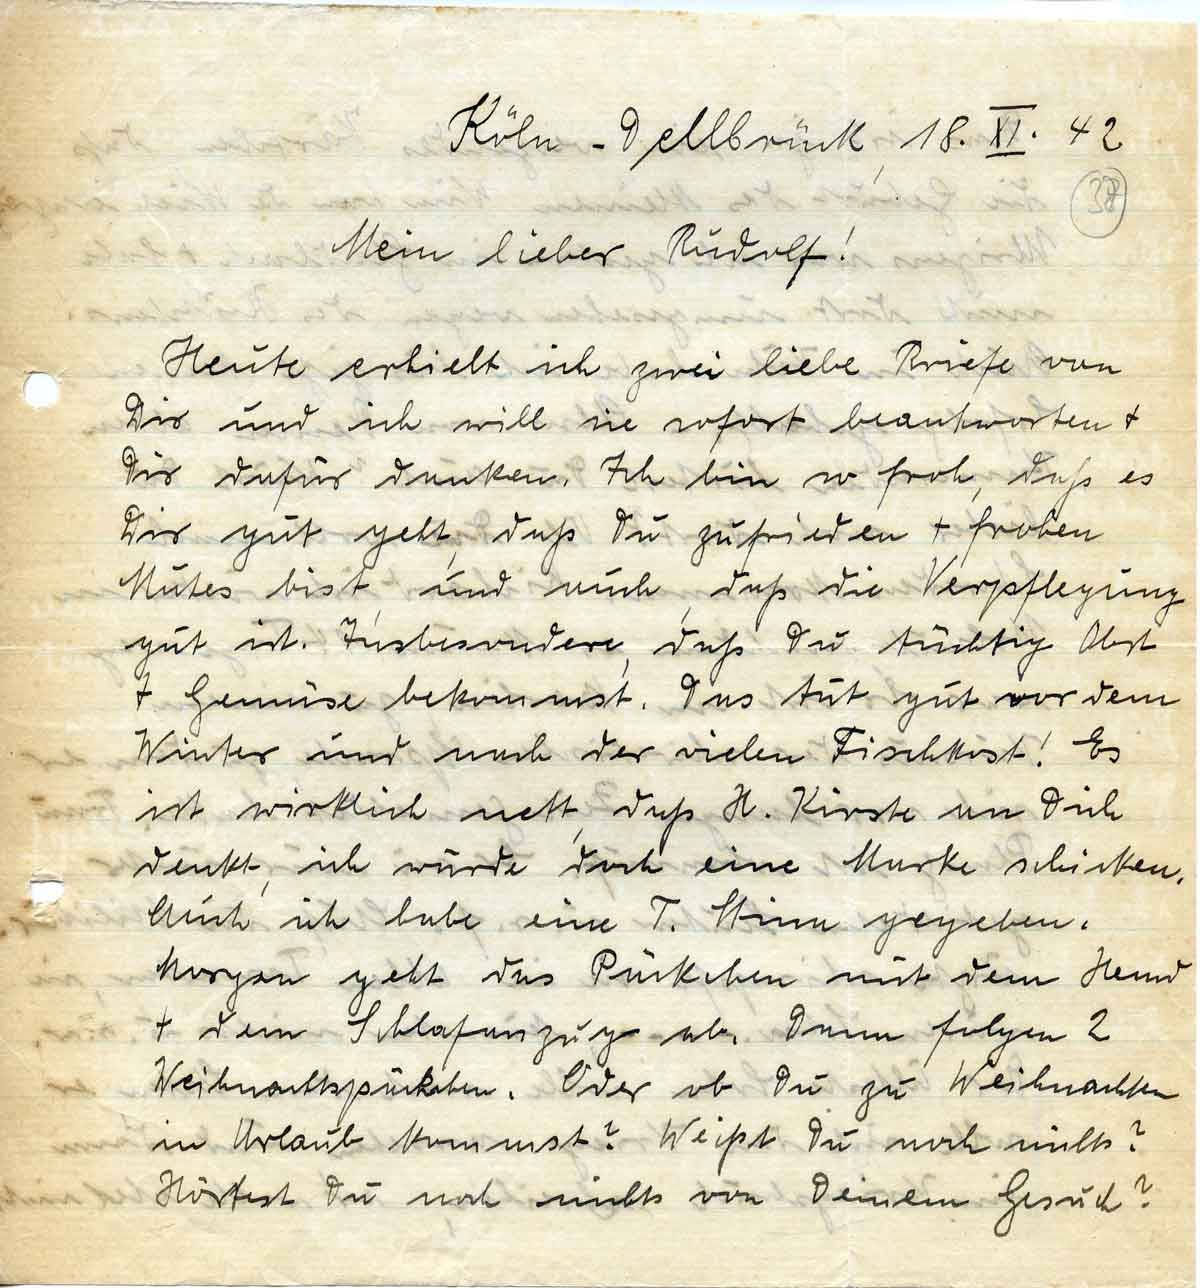 Köln-Dellbrück, 18. XI. 42
38
Mein lieber Rudolf!
Heute erhielt ich zwei liebe Briefe von
Dir und ich will sie sofort beantworten +
Dir dafür danken. Ich bin so froh, daß es
Dir gut geht, daß Du zufrieden + frohen
Mutes bist, und auch, daß die Verpflegung
gut ist. Insbesondere, daß Du tüchtig Obst
+ Gemüse bekommst. Das tut gut vor dem
Winter und nach der vielen Fischkost! Es
ist wirklich nett, daß H. Kirste an Dich
denkt, ich würde doch eine Marke schicken.
Auch ich habe eine T. gegeben.
Morgen geht das Päckchen mit dem Hemd
+ dem Schlafanzug ab. Dann folgen 2
Weihnachtspäckchen. Oder ob Du zu Weihnachten
in Urlaub kommst? Weißt Du noch nichts?
Hörtest Du noch nichts von Deinem Gesuch?